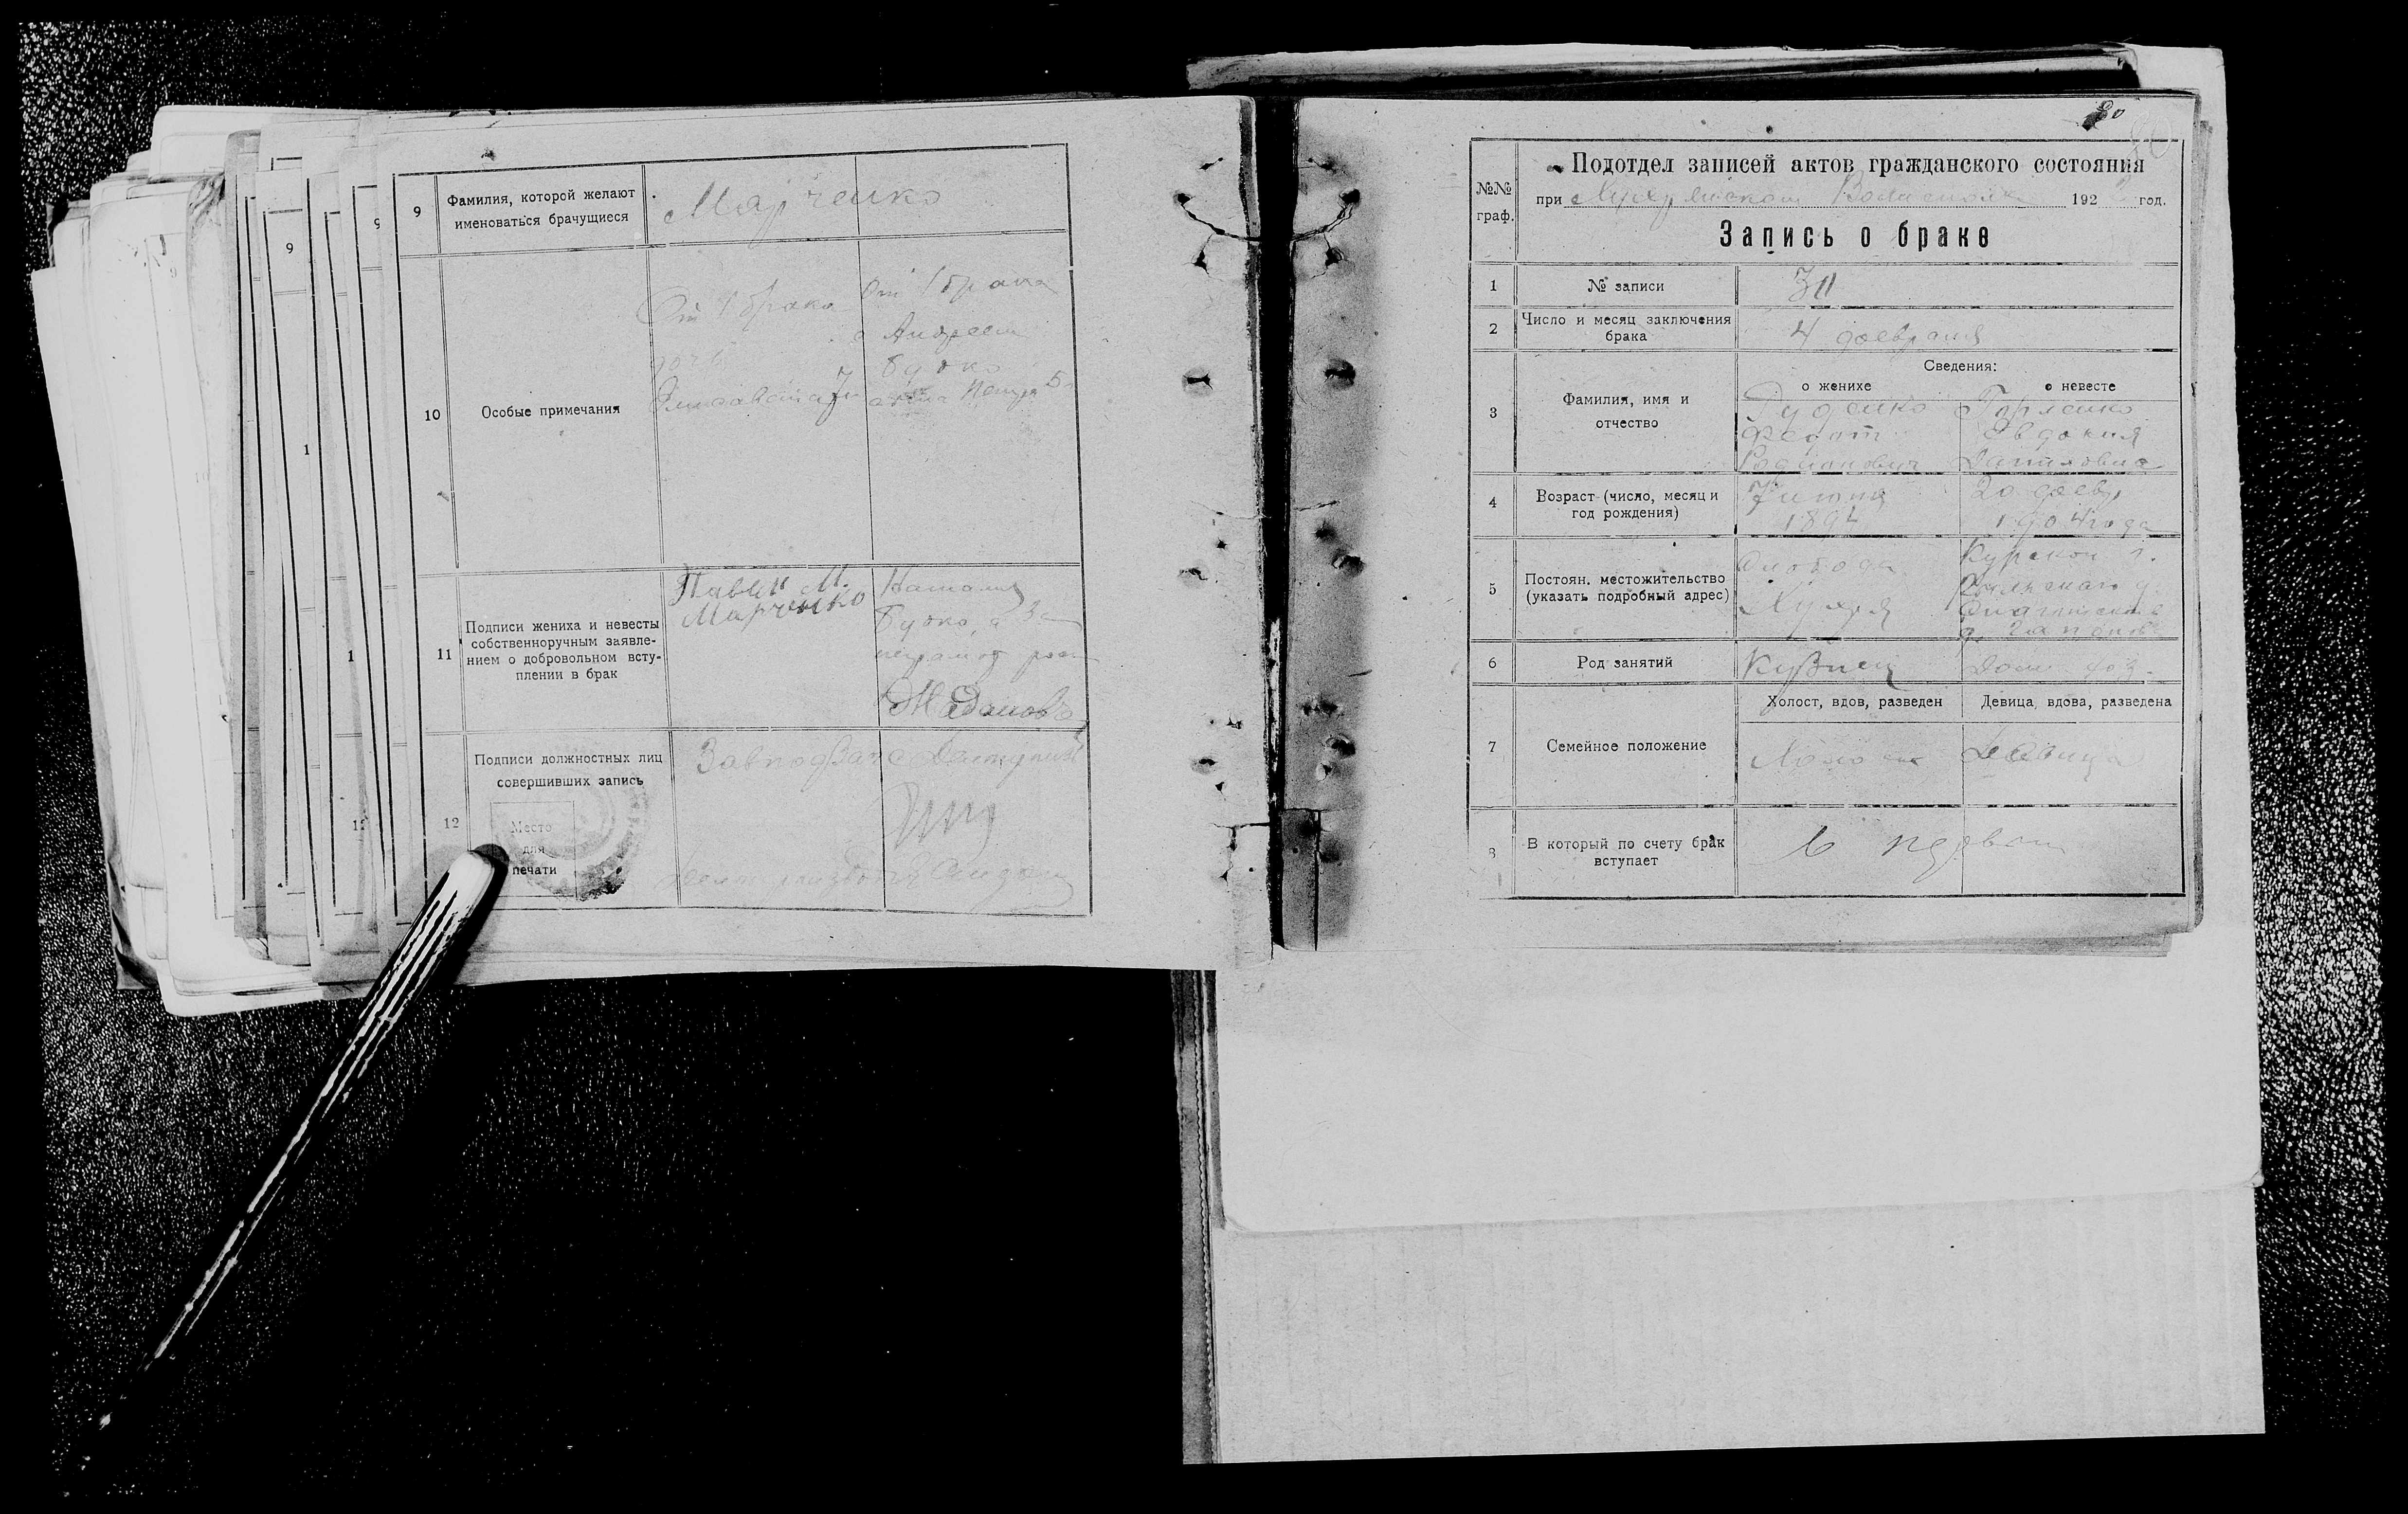 9
Фамилия, которой желают
именоваться брачущиеся
Марченко
10
Особые примечания
От 1 брака
дочь
Елисавета 7 л
От 1 брака
с Андреем
Будко
11
Подписи жениха и невесты
собственноручным заявле-
нием о добровольном всту-
плении в брак
Павел М.
Марченко
Наталия
Будко, а за
неграмот. росп
12
Подписи должностных лиц
совершивших запись
Место
для
печати
Завподзагс
Делопроизводит
9
9
1
1
12
20
№№
граф.
Подотдел записей актов гражданского состояния
при Волисполк 192 год.
Запись о браке
1
№ записи
2
Число и месяц заключения
брака
4 февраля
Сведения:
3
Фамилия, имя и
отчество
о женихе
Руденко
Федот
Родионович
о невесте
Горленко
Евдокия
Даниловна
4
Возраст (число, месяц и
год рождения)
7 июня
1894
20 февр.
1904 года
5
Постоян. местожительство
(указать подробный адрес)
Слобода
Курской г.
Рыльского у
6
Род занятий
Кузнец
Дом. хоз.
7
Семейное положение
Холост, вдов, разведен
Холост
Девица, вдова, разведена
Девица
8
В который по счету брак
вступает
В первый